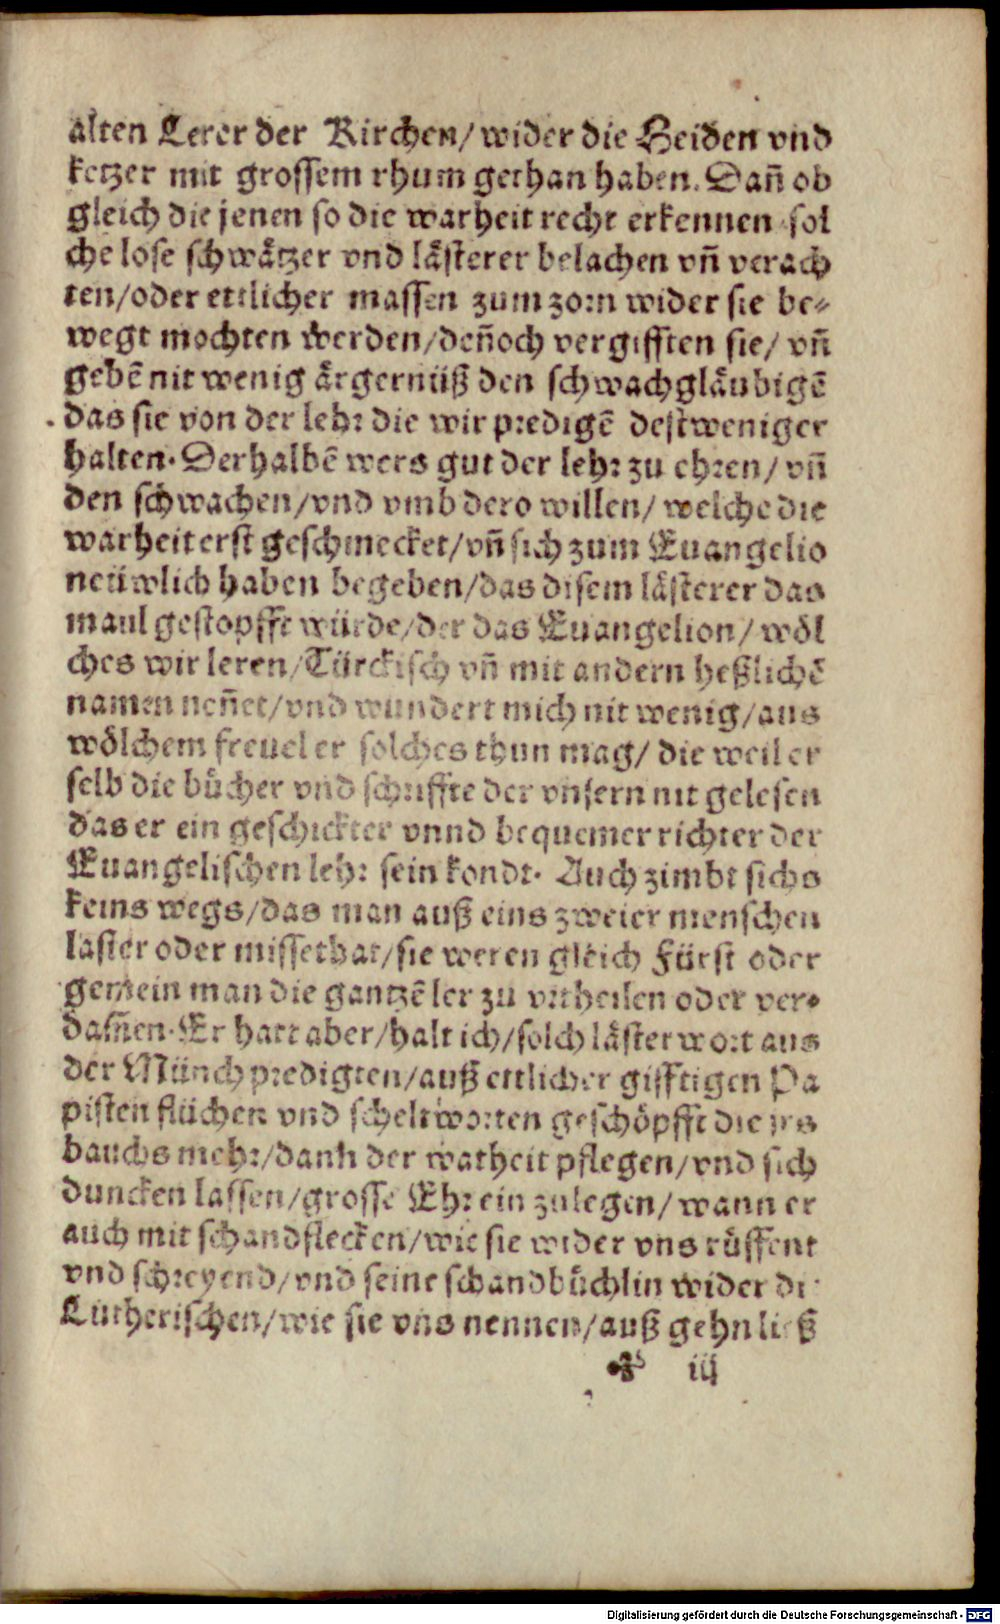 alten Lerer der Kirchen/ wider die Heiden vnd
ketzer mit grossem rhum gethan haben. Dañ ob
gleich die jenen so die warheit recht erkennen sol
che lose schwåtzer vnd låsterer belachen vñ verach
ten/oder ettlicher massen zum zorn wider sie be⸗
wegt mochten werden/deñoch vergifften sie/ vñ
gebẽ nit wenig årgernüß den schwachglåubigẽ
das sie von der lehr die wir predigẽ destweniger
halten. Derhalbẽ wers gut der lehr zu ehren/ vñ
den schwachen/vnd vmb dero willen/ welche die
warheit erst geschmecket/vñ sich zum Euangelio
neüwlich haben begeben/das disem låsterer das
maul gestopfft würde/der das Euangelion/ wöl
ches wir leren/Türckisch vñ mit andern heßlichẽ
namen neñet/vnd wundert mich nit wenig/aus
wölchem freuel er solches thun mag/ die weil er
selb die bůcher vnd schriffte der vnsern nit gelesen
das er ein geschickter vnnd bequemer richter der
Euangelischen lehr sein kondt. Auch zimbt sichs
keins wegs/das man auß eins zweier menschen
laster oder missethat/sie weren gleich Fürst oder
gemein man die gantzẽ ler zu vrtheilen oder ver⸗
dam̃en. Er hatt aber/halt ich/solch låster wort aus
der Münch predigten/auß ettlicher gifftigen Pa
pisten flüchen vnd scheltworten geschöpfft die jrs
bauchs mehr/dann der warheit pflegen/vnd sich
duncken lassen/grosse Ehr ein zulegen/ wann er
auch mit schandflecken/wie sie wider vns růffent
vnd schreyend/vnd seine schandbůchlin wider di
Lutherischen/wie sie vns nennen/auß gehn ließ
❧ iij
Digitalisierung gefördert durch die Deutsche Forschungsgemeinschaft - DFG